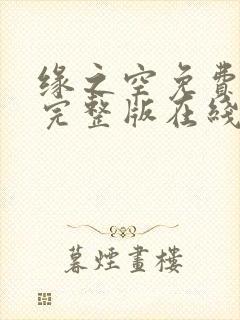 缘之空免费
完整版在綫
暮煙畫樓